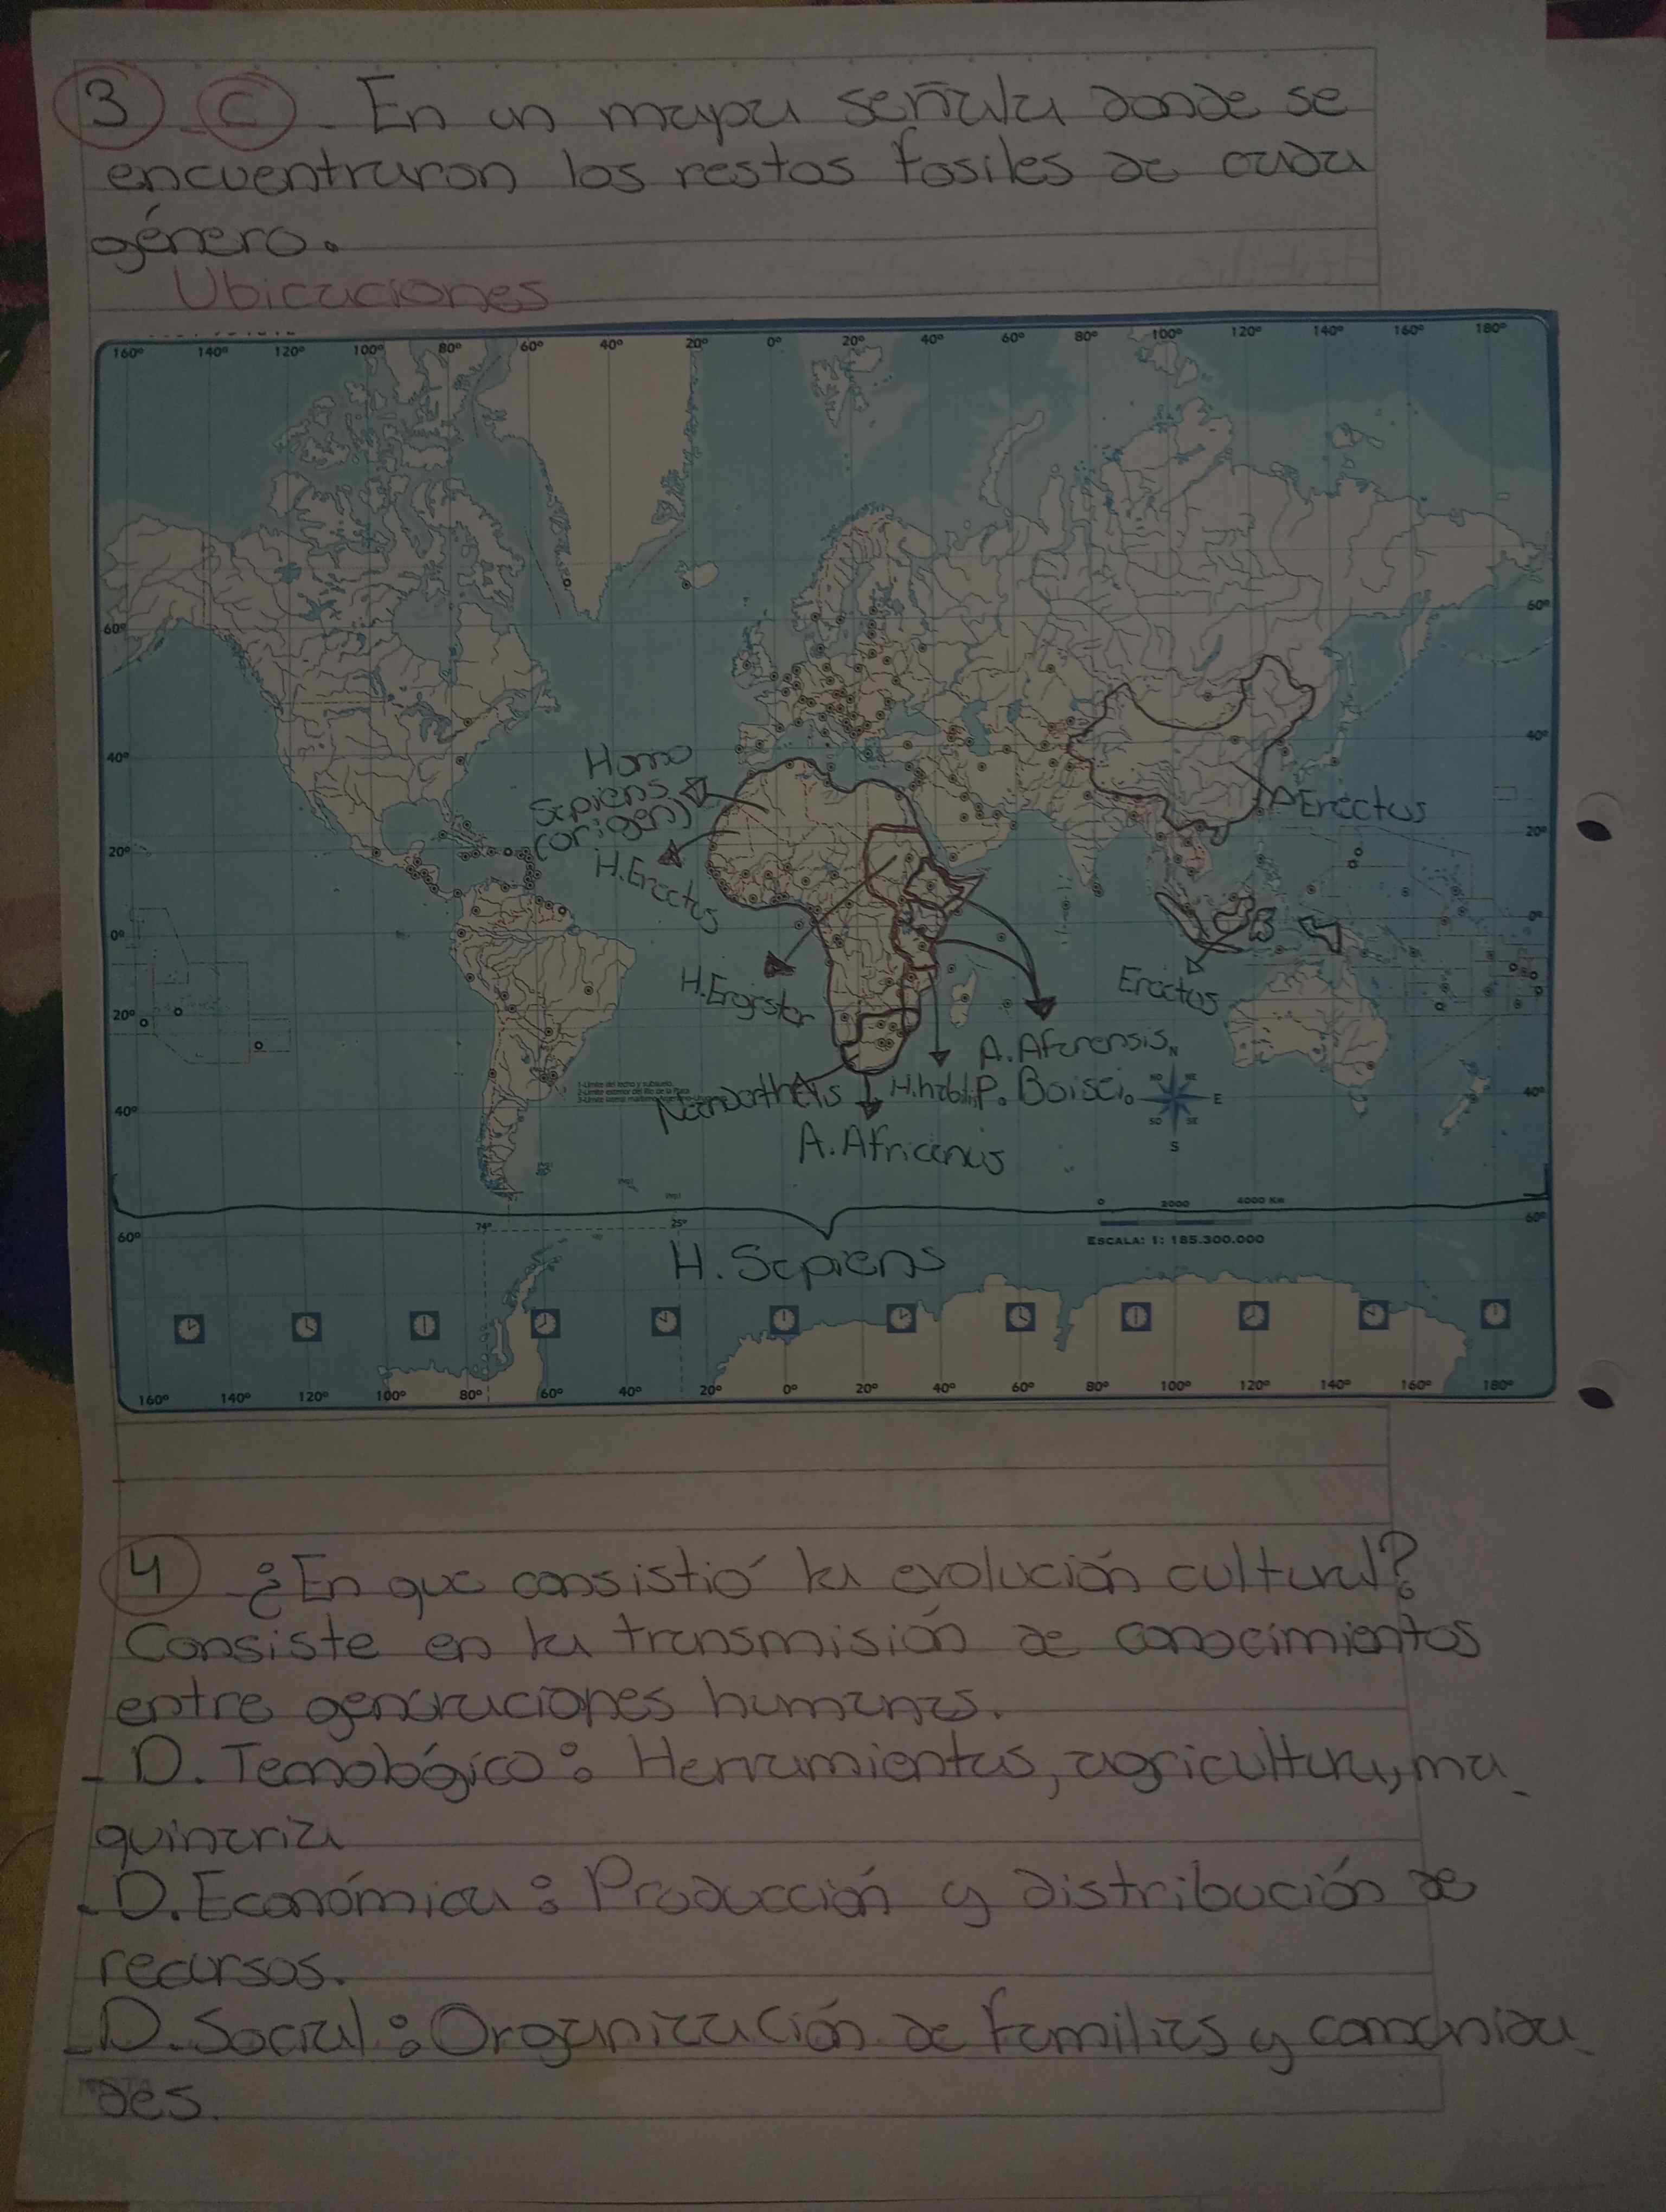 3 - C - En un mapa señala donde se
encuentraron los restos fosiles de cada
género.
Ubicaciones
160° 140° 120° 100° 80° 60° 40° 20° 0° 20° 40° 60° 80° 100° 120° 140° 160° 180°
60° 60°
40° 40°
Homo
Sapiens
(origen)
Erectus
20° 20°
H. Erectus
0° 0°
H. Ergaster
Erectus
20°
A. Afarensis
N
NO NE
Neanderthals H. habili P. Boisei
E
SO SE
S
40° 40°
A. Africanus
0 2000 4000 KM
ESCALA: 1: 185.300.000
74° 25°
60° 60°
H. Sapiens
160° 140° 120° 100° 80° 60° 40° 20° 0° 20° 40° 60° 80° 100° 120° 140° 160° 180°
4 - ¿En que consistió la evolución cultural?
Consiste en la transmisión de conocimientos
entre generaciones humanas.
- D. Tecnológico: Herramientas, agricultura, ma-
quinaria
- D. Económica: Producción y distribución de
recursos.
- D. Social: Organización de familias y comunida-
des.